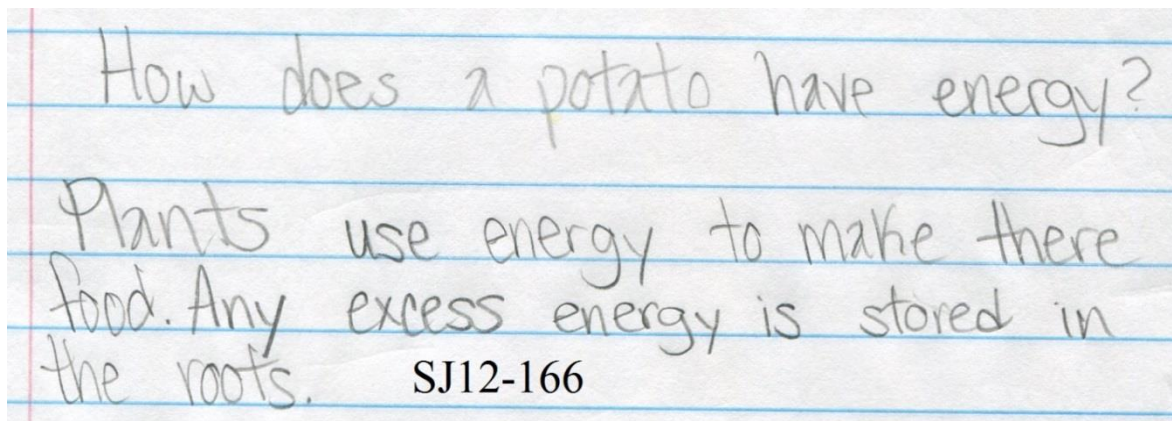 How does a potato have energy?
Plants use energy to make there
food. Any excess energy is stored in
the roots. SJ12-166